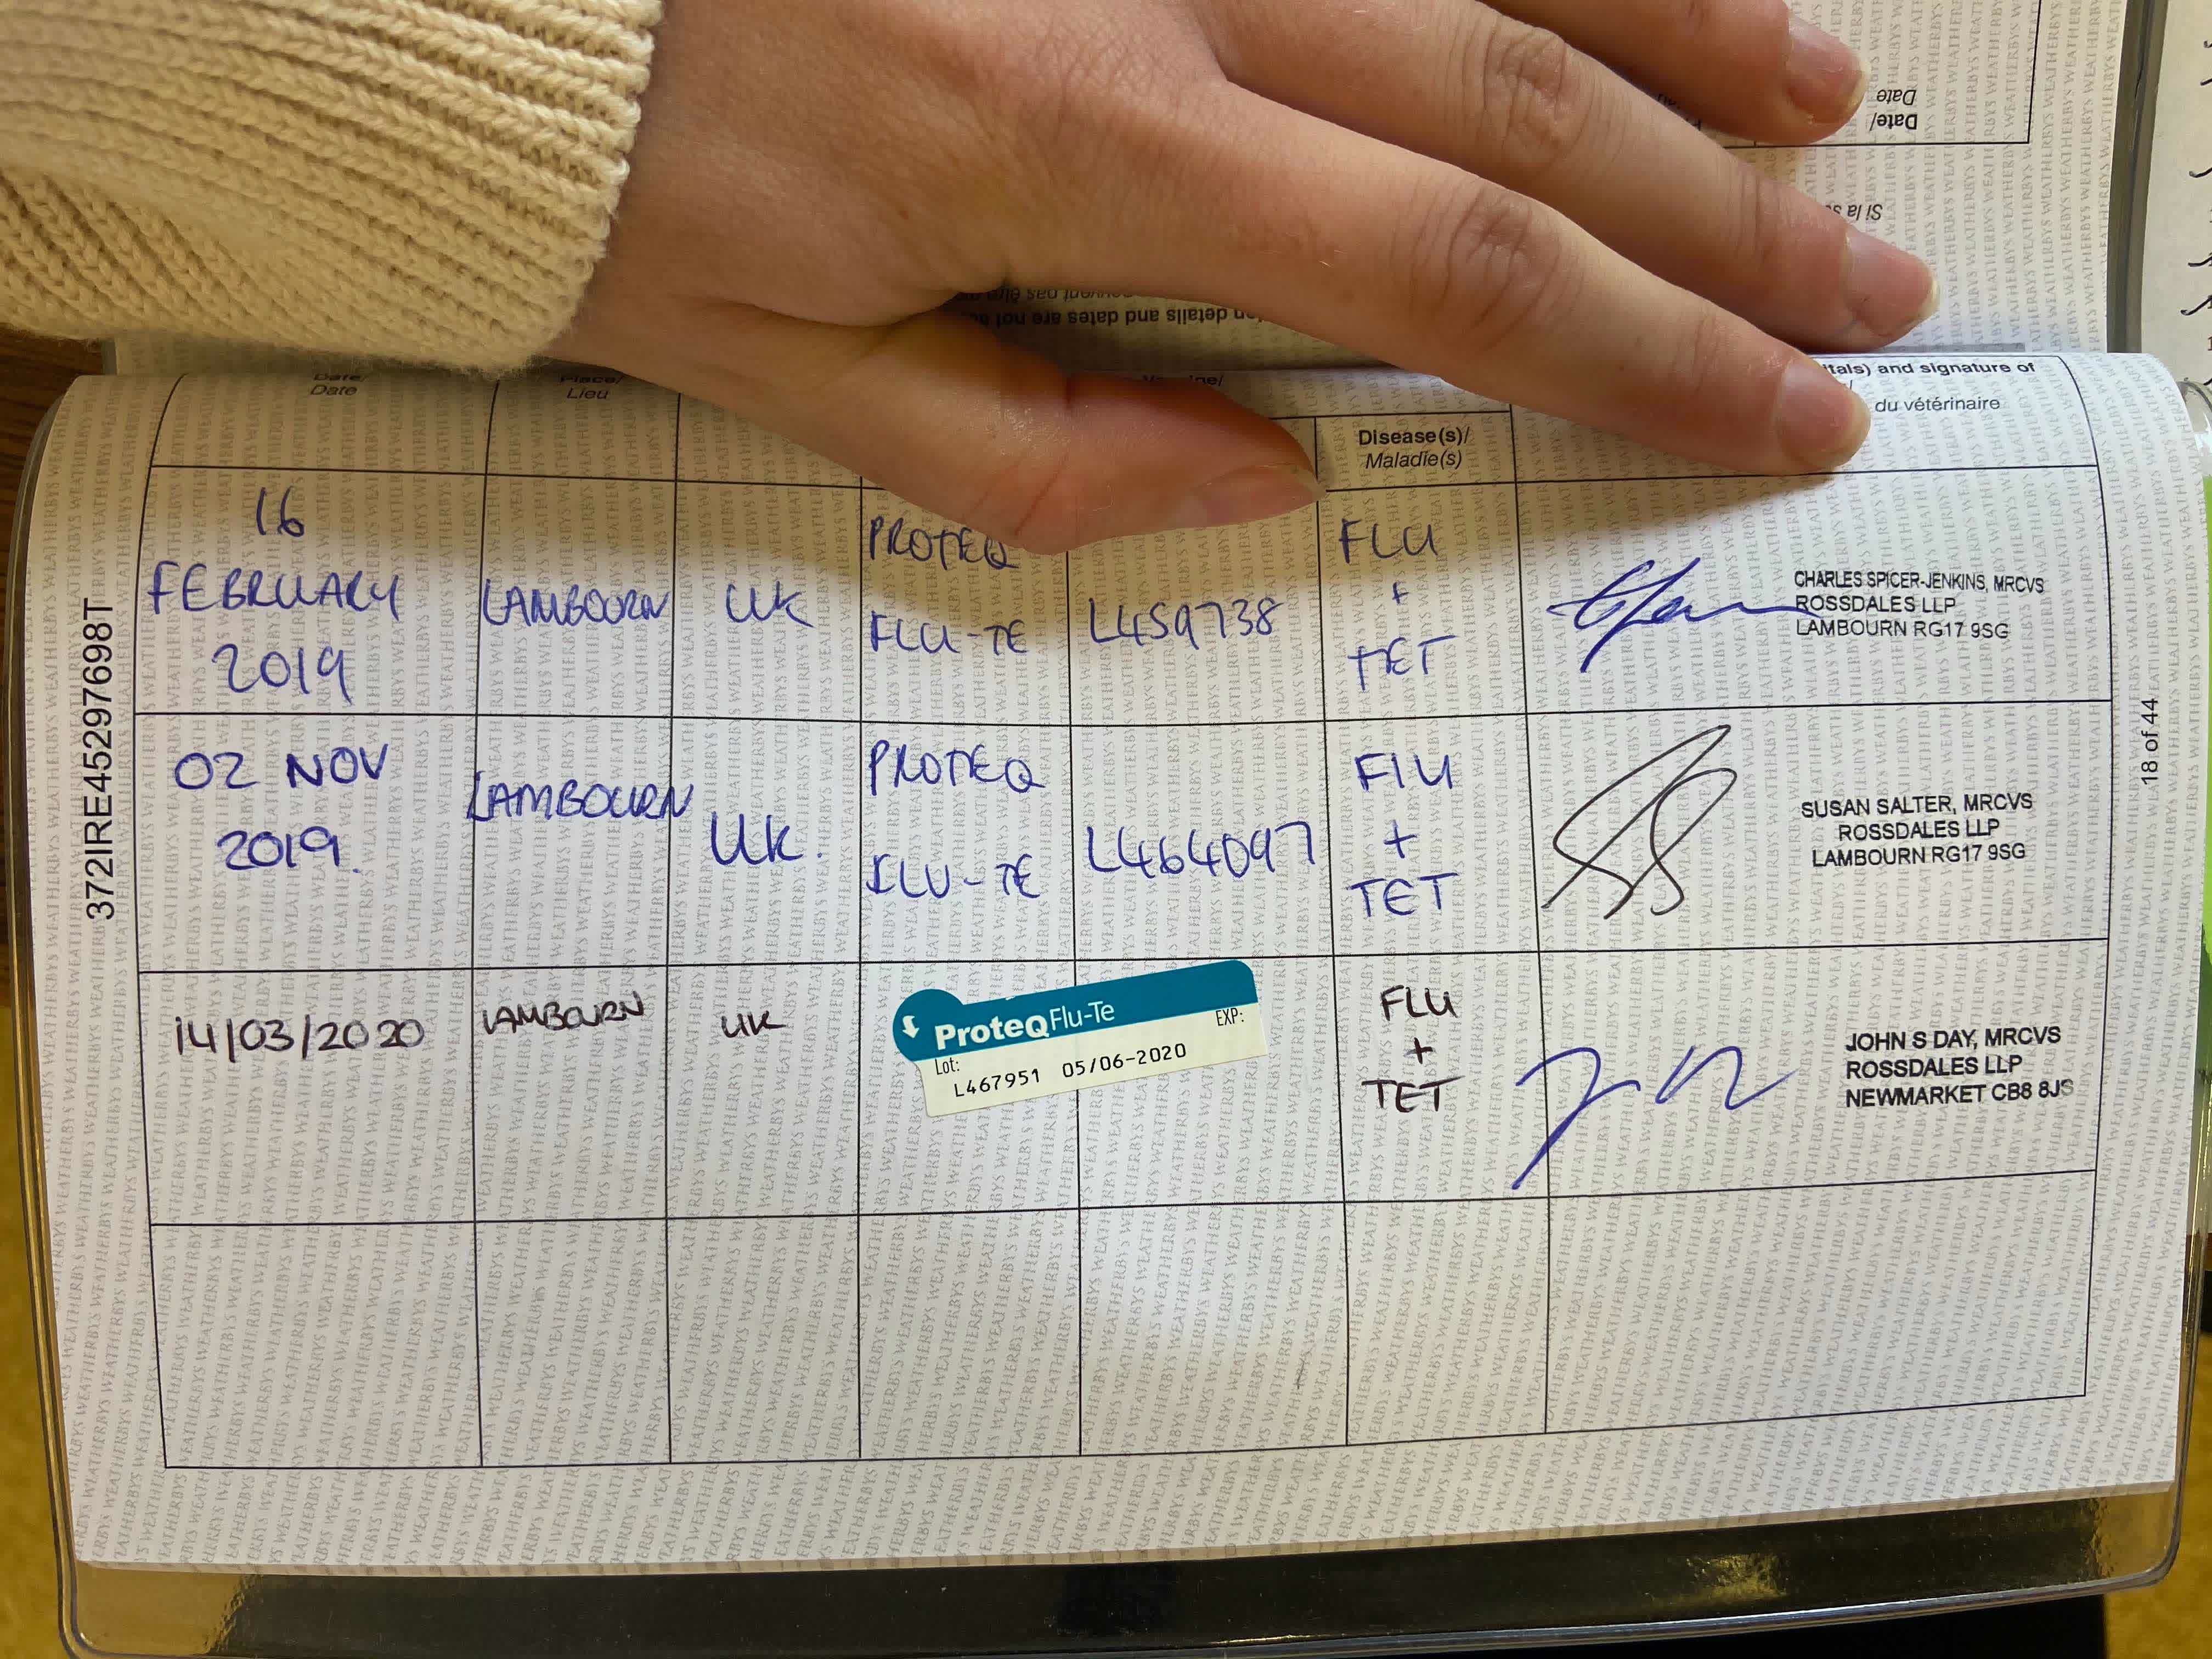 Date/
Date
Si la
details and dates are not
Date/
Date
Place/
Lieu
signature of
du vétérinaire
Disease(s)/
Maladie(s)
16
FEBRUARY
2019
LAMBOURN
UK
PROTEQ
FLU-TE
L459738
FLU
+
TET
CHARLES SPICER-JENKINS, MRCVS
ROSSDALES LLP
LAMBOURN RG17 9SG
02 NOV
2019.
LAMBOURN
UK.
PROTEQ
FLU-TE
L464097
FLU
+
TET
SUSAN SALTER, MRCVS
ROSSDALES LLP
LAMBOURN RG17 9SG
14/03/2020
LAMBOURN
UK
ProteqFlu-Te
Lot: EXP:
L467951 05/06-2020
FLU
+
TET
JOHN S DAY, MRCVS
ROSSDALES LLP
NEWMARKET CB8 8JS
372IRE45297698T
18 of 44
WEATHERBYS